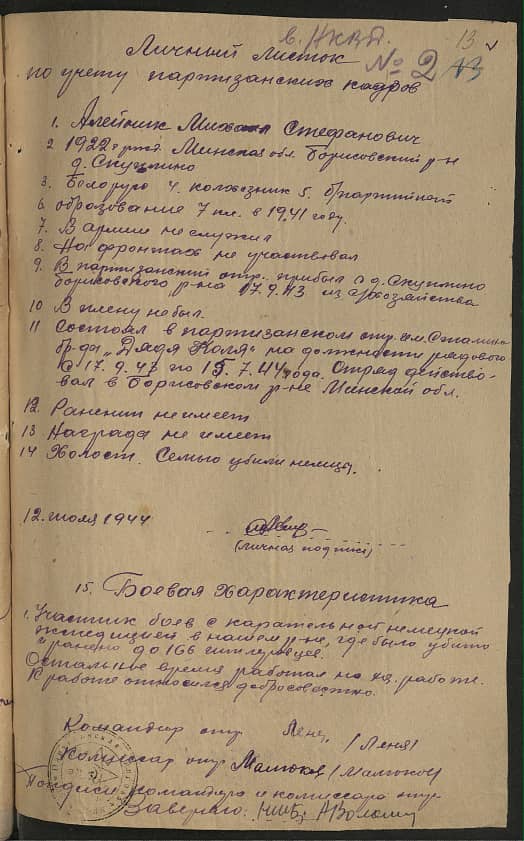 в. НКВД.
13
Личный листок № 2 13
по учету партизанских кадров
1. Алейник Михаил Стефанович
2 1922 г. рожд. Минская обл. Борисовский р-н
д. Скуплино
3. Белорус 4. колхозник 5. б/партийный
6 образование 7 кл. в 1941 году.
7. В армии не служил
8. На фронтах не участвовал
9. В партизанский отр. прибыл с д. Скуплино
Борисовского р-на 17.9.43 из
10 В плену не был.
11 Состоял в партизанском отр. им. Сталина
бр-да "Дядя Коля" на должности рядового
с 17.9.43 по 15.7.44 года. Отряд действо-
вал в Борисовском р-не Минской обл.
12. Ранений не имеет
13 Наград не имеет
14 Холост. Семью убили немцы.
12. июля 1944
(личная подпись)
15. Боевая характеристика
1. Участник боев с карательной немецкой
экспедицией в нашем р-не, где было убито
и ранено до 166 гитлеровцев.
Остальное время работал на хоз. работе.
К работе относился добросовестно.
Командир отр. Леня /Леня/
Комиссар отр Малюков /Малюков/
Подписи командира и комиссара отр
Заверяю: НШБ